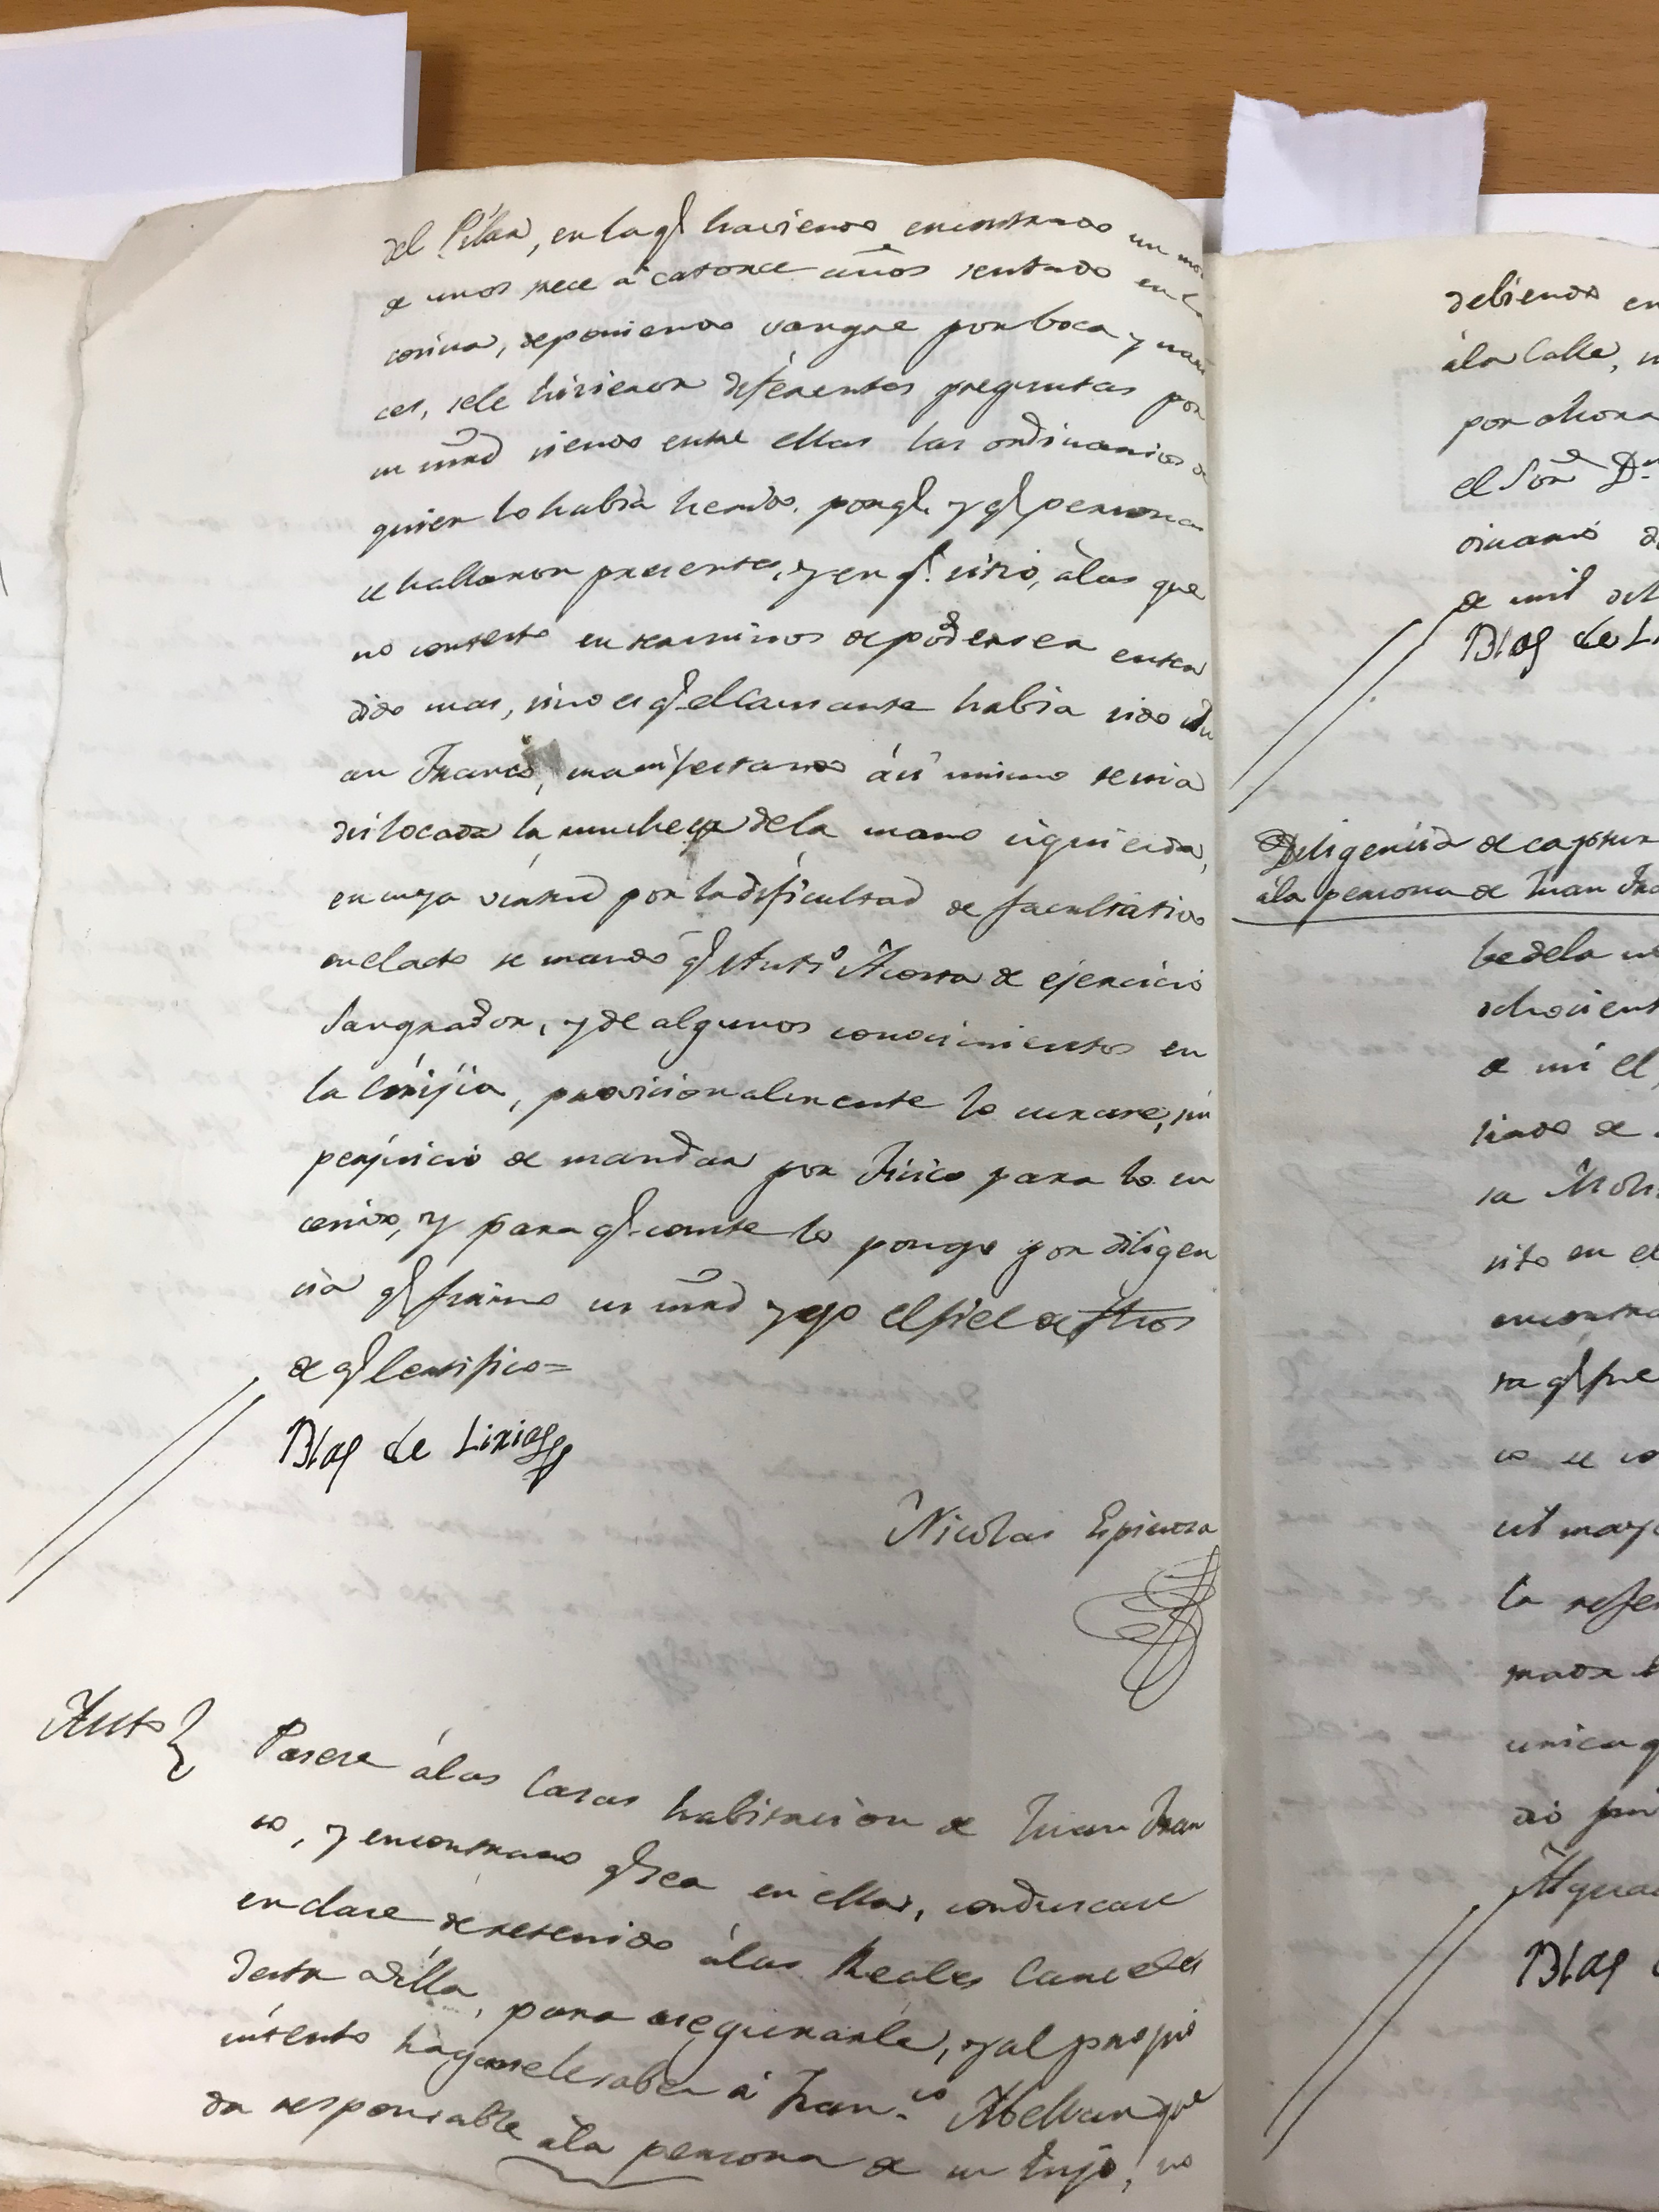 del Pilar, en la ql haviendo encontrado un mo
de unos trece á catorce años sentado en la
cosina, deponiendo sangre por boca y nari
ces, sele hisieron diferentes preguntas por
su mrd siendo entre ellas las ordinarias de
quien lo habia herido, porql. y ql personas
se hallaron presentes, y en ql. sitio, álas que
no contesto en terminos de poderser enten
dido mas, sino es ql. el Causante habia sido Ju
an Franco, manifestando ási mismo tenia
dislocada la muñeca dela mano isquierda,
en cuya virtud por la dificultad de facultativo
en el acto se mandó ql Antº Acosta de ejercicio
Sangrador, y de algunos conocimientos en
la Cirijia, provicionalmente lo curase, sin
perjuicio de mandar por Fisico para lo su
cesivo, y para ql. conste lo pongo por diligen
cia ql firmo su mrd y yo el fiel de fhos
de ql Certifico=
Blas de Lixias
Nicolas Espinosa
Auto
Pasese álas Casas habitacion de Juan Fran
co, y encontrado ql sea en ellas, conduscase
en clase de detenido álas Reales Carceles
desta Villa, para asegurarle, y al propio
intento hagasele saber á Fran.co Abellan que
da responsable ála persona de su hijo, no
debiendo en
ála Calle,
por ahora
el Sor Dn
dinario d
de mil och
Blas de Li
Diligencia de captur
ála persona de Juan Fra
be dela
ochocient
de mi el
tiado de
sa
sito en el
encontra
ra ql fue
co se co
cil mayo
la refer
mada
unica q
dio fin
Alguac
Blas